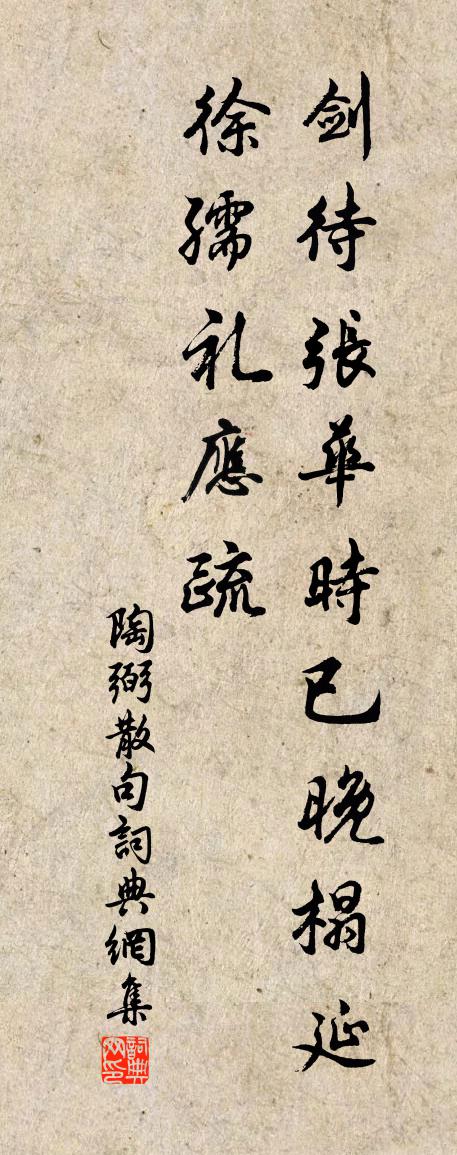 剑待張華時已晚榻延
徐孺礼應疏
陶弼散句詞典網集
詞典网印